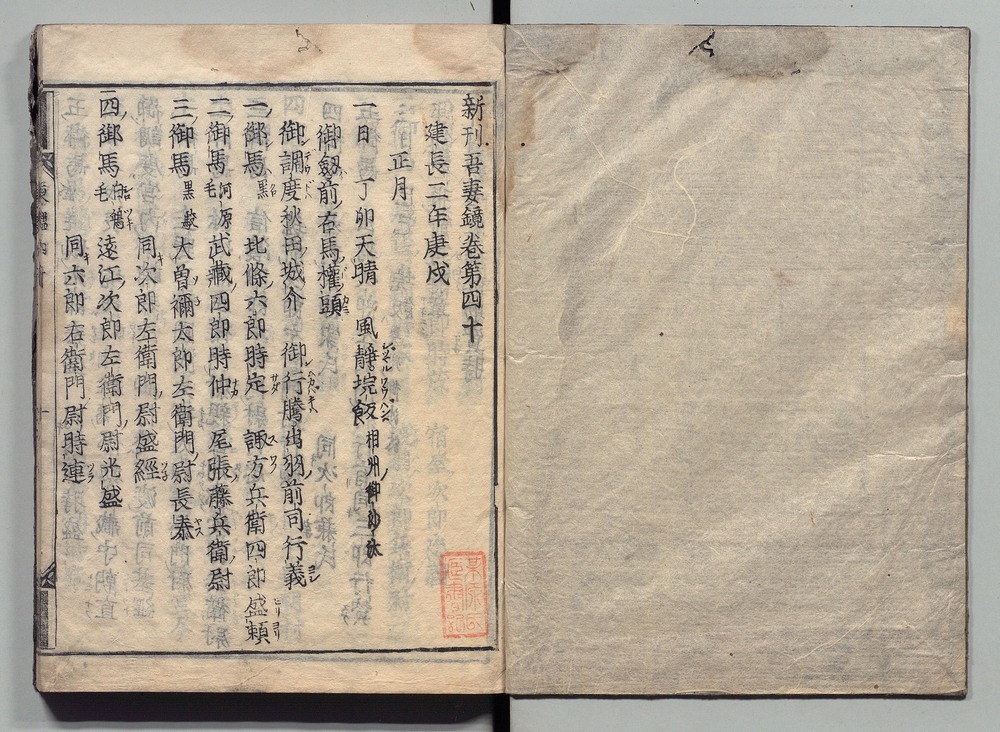 新刊吾妻鏡卷第四十
建長二年庚戌
正月
一日丁卯天晴風靜垸飯相州御沙汰
御劔前右馬權頭
御調度秋田城介御行騰出羽前司行義
一御馬黒北條六郎時定諏方兵衛四郎盛頼
二御馬河原毛武藏四郎時仲尾張藤兵衛尉
三御馬黒駮大曽禰太郎左衛門尉長泰
同次郎左衛門尉盛經
四御馬毛遠江次郎左衛門尉光盛
同六郎右衛門尉時連